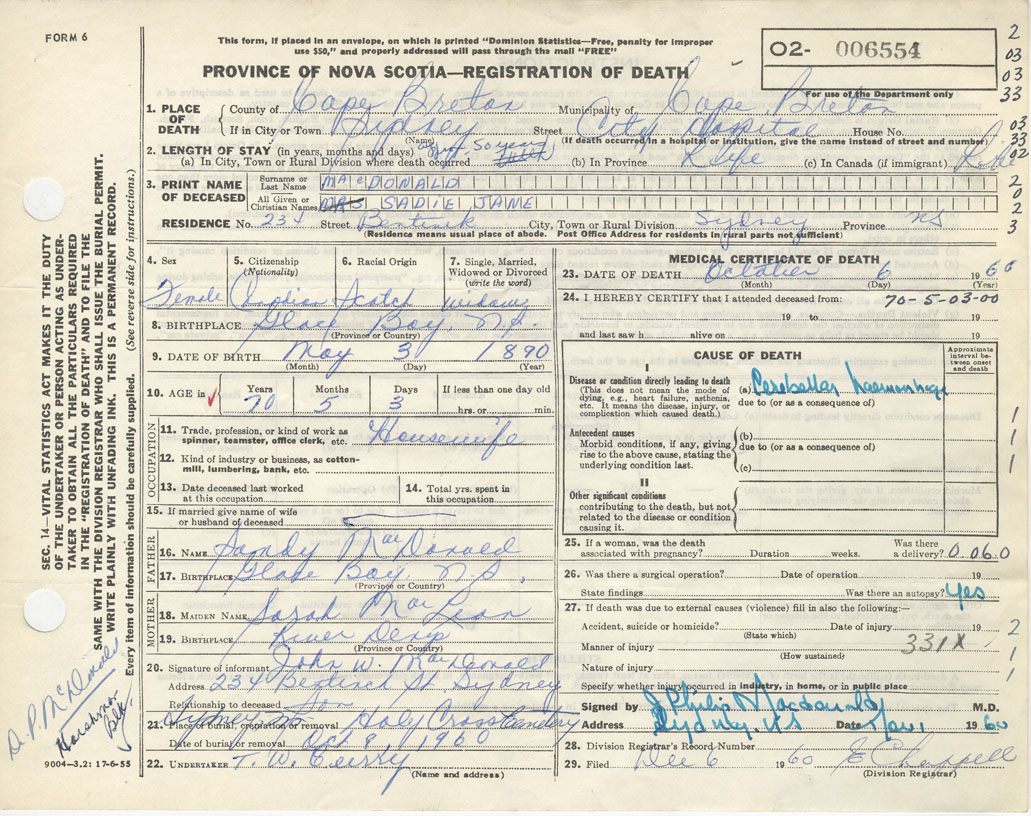 FORM 6
This form, if placed in an envelope, on which is printed "Dominion Statistics—Free, penalty for improper
use $50," and properly addressed will pass through the mail "FREE"
PROVINCE OF NOVA SCOTIA—REGISTRATION OF DEATH
02- 006554
For use of the Department only
2
03
03
33
1. PLACE OF DEATH
County of Cape Breton Municipality of Cape Breton
If in City or Town Sydney Street City Hospital House No.
(Name) (If death occurred in a hospital or institution, give the name instead of street and number)
03
33
02
2. LENGTH OF STAY (in years, months and days)
(a) In City, Town or Rural Division where death occurred 50 years (b) In Province Life (c) In Canada (if immigrant) Life
3. PRINT NAME OF DECEASED
Surname or Last Name MacDONALD
All Given or Christian Names MRS SADIE JANE
RESIDENCE No. 234 Street City, Town or Rural Division Sydney Province NS
(Residence means usual place of abode. Post Office Address for residents in rural parts not sufficient)
2
0
2
3
4. Sex
Female
5. Citizenship
(Nationality)
Canadian
6. Racial Origin
Scotch
7. Single, Married,
Widowed or Divorced
(write the word)
widow
8. BIRTHPLACE Glace Bay, N.S.
(Province or Country)
9. DATE OF BIRTH May 3 1890
(Month) (Day) (Year)
10. AGE in
Years Months Days If less than one day old
70 5 3 hrs. or min.
OCCUPATION
11. Trade, profession, or kind of work as
spinner, teamster, office clerk, etc. Housewife
12. Kind of industry or business, as cotton-
mill, lumbering, bank, etc.
13. Date deceased last worked
at this occupation
14. Total yrs. spent in
this occupation
15. If married give name of wife
or husband of deceased
FATHER
16. NAME Sandy MacDonald
17. BIRTHPLACE Glace Bay, N.S.
(Province or Country)
MOTHER
18. MAIDEN NAME Sarah MacLean
19. BIRTHPLACE River Denys
(Province or Country)
20. Signature of informant John W. MacDonald
Address 234 St. Sydney
Relationship to deceased Son
21. Place of burial, cremation or removal Sydney Holy Cross Cemetery
Date of burial or removal Oct 8, 1960
22. UNDERTAKER T. W. Curry
(Name and address)
MEDICAL CERTIFICATE OF DEATH
23. DATE OF DEATH October 6 1960
(Month) (Day) (Year)
24. I HEREBY CERTIFY that I attended deceased from: 70-5-03-00
19 to 19
and last saw h alive on 19
CAUSE OF DEATH
Approximate
interval be-
tween onset
and death
I
Disease or condition directly leading to death
(This does not mean the mode of
dying, e.g., heart failure, asthenia,
etc. It means the disease, injury, or
complication which caused death.)
(a) Cerebellar haemorrhage
due to (or as a consequence of)
Antecedent causes
Morbid conditions, if any, giving
rise to the above cause, stating the
underlying condition last.
(b)
due to (or as a consequence of)
(c)
II
Other significant conditions
contributing to the death, but not
related to the disease or condition
causing it.
1
1
1
25. If a woman, was the death
associated with pregnancy? Duration weeks. Was there
a delivery? 0060
26. Was there a surgical operation? Date of operation 19
State findings Was there an autopsy? Yes
27. If death was due to external causes (violence) fill in also the following:—
Accident, suicide or homicide? Date of injury 19
(State which)
Manner of injury 331X
(How sustained)
Nature of injury
Specify whether injury occurred in industry, in home, or in public place
2
1
1
Signed by J Philip Macdonald M.D.
Address Sydney, N.S. Date Nov. 1960
28. Division Registrar's Record Number
29. Filed Dec 6 1960 E Chappell
(Division Registrar)
SEC. 14—VITAL STATISTICS ACT MAKES IT THE DUTY
OF THE UNDERTAKER OR PERSON ACTING AS UNDER-
TAKER TO OBTAIN ALL THE PARTICULARS REQUIRED
IN THE "REGISTRATION OF DEATH" AND FILE THE
SAME WITH THE DIVISION REGISTRAR WHO SHALL ISSUE THE BURIAL PERMIT.
WRITE PLAINLY WITH UNFADING INK. THIS IS A PERMANENT RECORD.
Every item of information should be carefully supplied. (See reverse side for instructions.)
D. P. McDonald
9004—3.2: 17-6-55